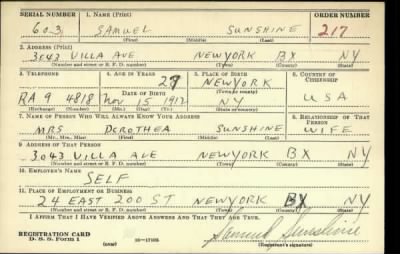 SERIAL NUMBER 1. NAME (Print) ORDER NUMBER
603 SAMUEL SUNSHINE 217
(First) (Middle) (Last)
2. ADDRESS (Print)
3043 VILLA AVE NEW YORK BX NY
(Number and street or R. F. D. number) (Town) (County) (State)
3. TELEPHONE 4. AGE IN YEARS 5. PLACE OF BIRTH 6. COUNTRY OF
27 NEW YORK CITIZENSHIP
RA 9 4818 DATE OF BIRTH (Town or county)
NOV 15 1912 NY USA
(Exchange) (Number) (Mo.) (Day) (Yr.) (State or country)
7. NAME OF PERSON WHO WILL ALWAYS KNOW YOUR ADDRESS 8. RELATIONSHIP OF THAT
PERSON
MRS DEROTHEA SUNSHINE WIFE
(Mr., Mrs., Miss) (First) (Middle) (Last)
9. ADDRESS OF THAT PERSON
3043 VILLA AVE NEW YORK BX NY
(Number and street or R. F. D. number) (Town) (County) (State)
10. EMPLOYER'S NAME
SELF
11. PLACE OF EMPLOYMENT OR BUSINESS
24 EAST 200 ST NEW YORK BX NY
(Number and street or R. F. D. number) (Town) (County) (State)
I AFFIRM THAT I HAVE VERIFIED ABOVE ANSWERS AND THAT THEY ARE TRUE.
REGISTRATION CARD
D. S. S. Form 1 Samuel Sunshine
(Registrant's signature)